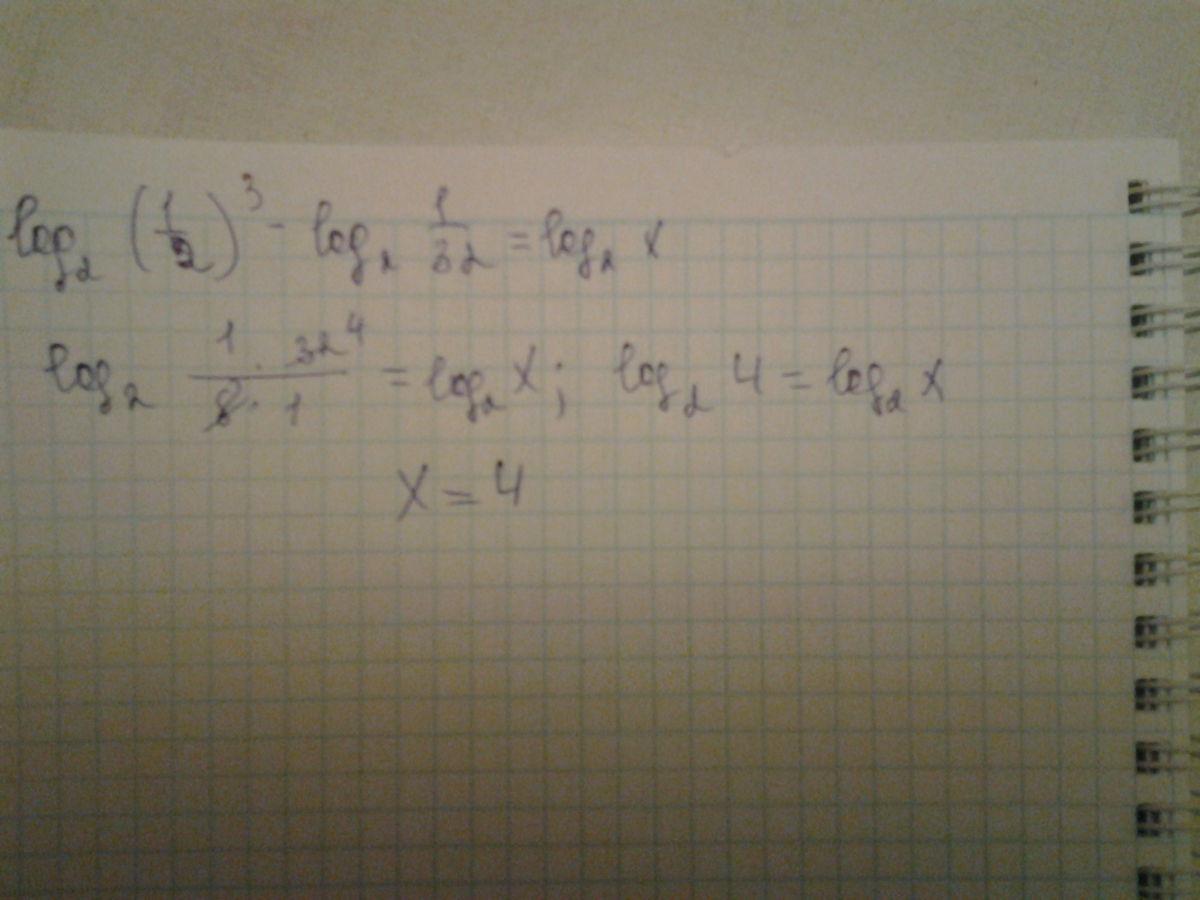 log₂ (1/2)³ - log₂ 1/32 = log₂ x
log₂ (1 · 32⁴)/(8 · 1) = log₂ x; log₂ 4 = log₂ x
x = 4